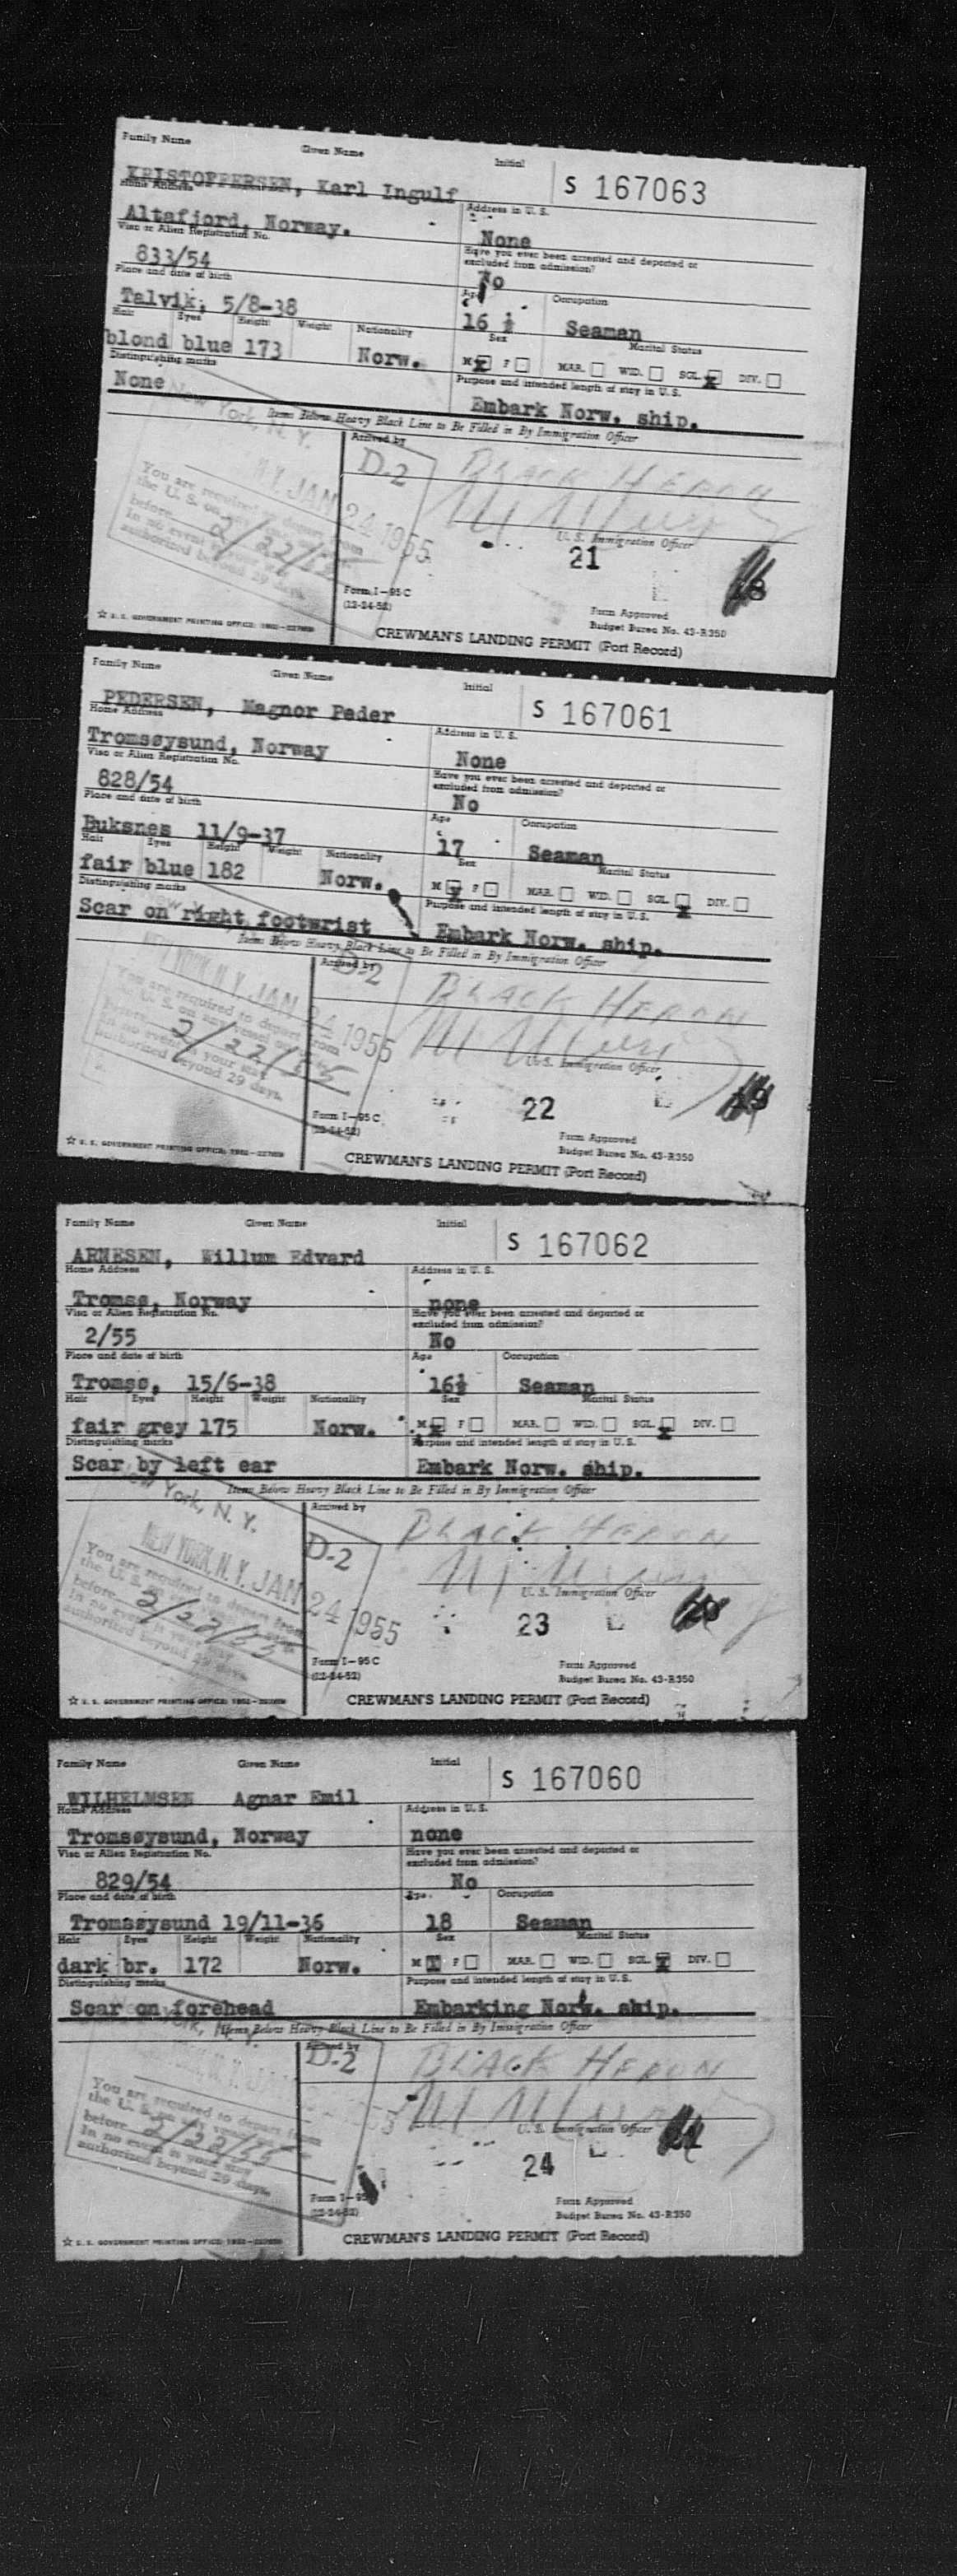 Family Name Given Name Initial
S 167063
KRISTOFFERSEN, Karl Ingulf
Home Address Address in U. S.
Altafjord, Norway. None
Visa or Alien Registration No. Have you ever been arrested and deported or excluded from admission?
833/54 No
Place and date of birth Age Occupation
Talvik, 5/8-38 16 ½ Seaman
Hair Eyes Height Weight Nationality Sex Marital Status
blond blue 173 Norw. M X F MAR. WID. SGL. X DIV.
Distinguishing marks Purpose and intended length of stay in U. S.
None Embark Norw. ship.
Items Below Heavy Black Line to Be Filled in By Immigration Officer
New York, N. Y.
Arrived by
D-2 BLACK HERON
N.Y. JAN 24 1955
You are required to depart from
the U. S. on
before 2/22/55
In no event
authorized beyond 29 days
U. S. Immigration Officer
21
Form I-95 C
(12-24-52)
Form Approved
Budget Bureau No. 43-R350
☆ U. S. GOVERNMENT PRINTING OFFICE: 1952
CREWMAN'S LANDING PERMIT (Port Record)
Family Name Given Name Initial
S 167061
PEDERSEN, Magnor Peder
Home Address Address in U. S.
Tromsøysund, Norway None
Visa or Alien Registration No. Have you ever been arrested and deported or excluded from admission?
828/54 No
Place and date of birth Age Occupation
Buksnes 11/9-37 17 Seaman
Hair Eyes Height Weight Nationality Sex Marital Status
fair blue 182 Norw. M X F MAR. WID. SGL. X DIV.
Distinguishing marks Purpose and intended length of stay in U. S.
Scar on right footwrist Embark Norw. ship.
Items Below Heavy Black Line to Be Filled in By Immigration Officer
Arrived by
D-2 BLACK HERON
YORK, N.Y. JAN 24 1955
You are required to depart from
U. S. on
before 2/22/55
In no event is your stay
authorized beyond 29 days
U. S. Immigration Officer
22
Form I-95 C
(12-24-52)
Form Approved
Budget Bureau No. 43-R350
☆ U. S. GOVERNMENT PRINTING OFFICE: 1952
CREWMAN'S LANDING PERMIT (Port Record)
Family Name Given Name Initial
S 167062
ARNESEN, Willum Edvard
Home Address Address in U. S.
Tromsø, Norway none
Visa or Alien Registration No. Have you ever been arrested and deported or excluded from admission?
2/55 No
Place and date of birth Age Occupation
Tromsø, 15/6-38 16½ Seaman
Hair Eyes Height Weight Nationality Sex Marital Status
fair grey 175 Norw. M X F MAR. WID. SGL. X DIV.
Distinguishing marks Purpose and intended length of stay in U. S.
Scar by left ear Embark Norw. ship.
Items Below Heavy Black Line to Be Filled in By Immigration Officer
New York, N. Y.
Arrived by
D-2 BLACK HERON
NEW YORK, N.Y. JAN 24 1955
You are required to depart from
the U. S. on
before 2/22/55
In no event is your stay
authorized beyond 29 days
U. S. Immigration Officer
23
Form I-95 C
(12-24-52)
Form Approved
Budget Bureau No. 43-R350
☆ U. S. GOVERNMENT PRINTING OFFICE: 1952
CREWMAN'S LANDING PERMIT (Port Record)
Family Name Given Name Initial
S 167060
WILHELMSEN Agnar Emil
Home Address Address in U. S.
Tromsøysund, Norway none
Visa or Alien Registration No. Have you ever been arrested and deported or excluded from admission?
829/54 No
Place and date of birth Age Occupation
Tromsøysund 19/11-36 18 Seaman
Hair Eyes Height Weight Nationality Sex Marital Status
dark br. 172 Norw. M X F MAR. WID. SGL. X DIV.
Distinguishing marks Purpose and intended length of stay in U. S.
Scar on forehead Embarking Norw. ship.
Items Below Heavy Black Line to Be Filled in By Immigration Officer
Arrived by
D-2 BLACK HERON
You are required to depart from
the U. S. on
before 2/22/55
In no event is your stay
authorized beyond 29 days
U. S. Immigration Officer
24
Form I-95
(12-24-52)
Form Approved
Budget Bureau No. 43-R350
☆ U. S. GOVERNMENT PRINTING OFFICE: 1952
CREWMAN'S LANDING PERMIT (Port Record)